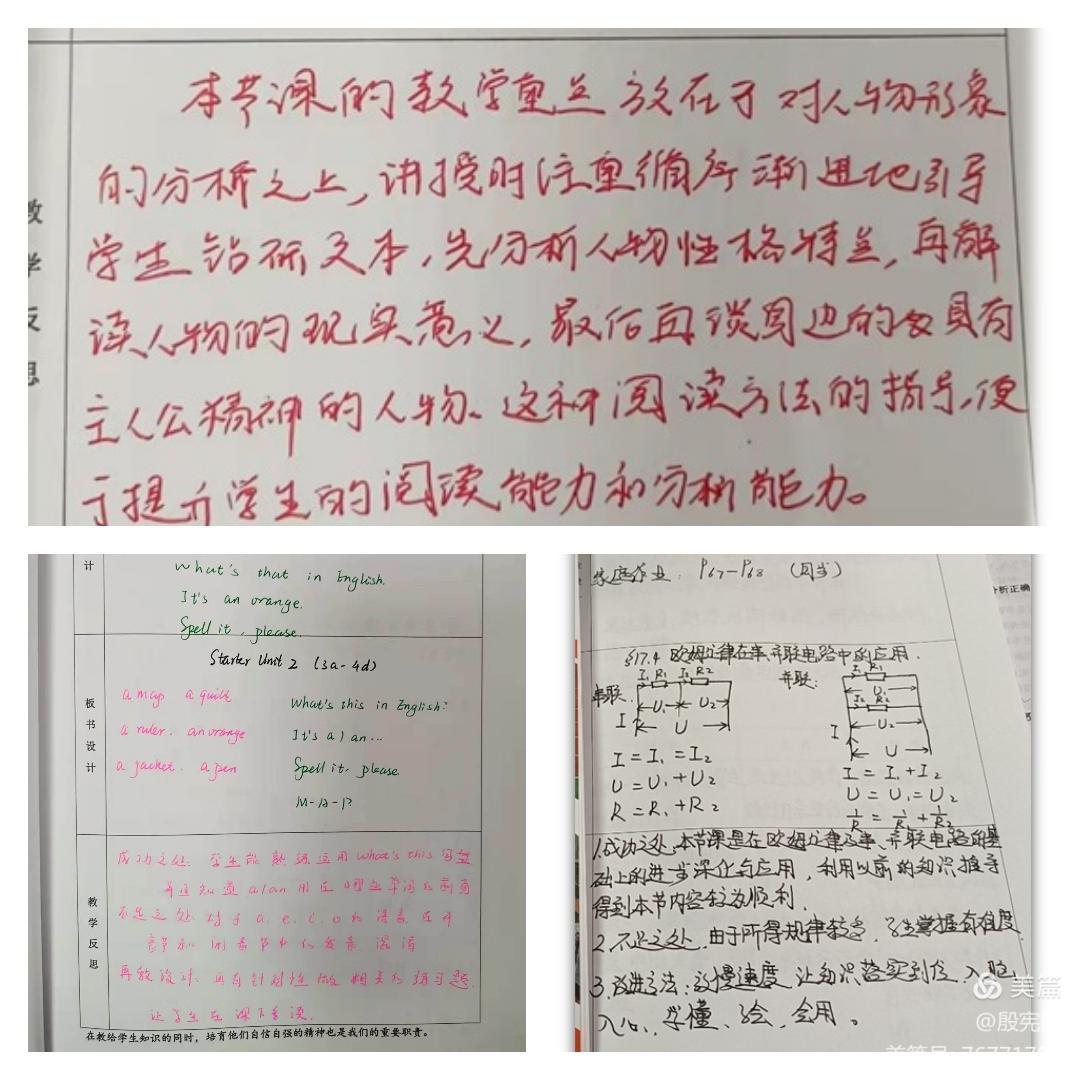 教学反思
本节课的教学重点放在于对人物形象
的分析之上，讲授时注重循序渐进地引导
学生钻研文本，先分析人物性格特点，再解
读人物的现实意义，最后再谈周边的具有
主人公精神的人物。这种阅读方法的指导，便
于提升学生的阅读能力和分析能力。
计
What's that in English.
It's an orange.
Spell it, please.
板书设计
Starter Unit 2 (3a-4d)
a map a quilt
a ruler. an orange
a jacket. a pen
What's this in English?
It's a/an...
Spell it, please
M-A-P
教学反思
成功之处: 学生能熟练运用what's this句型
并且知道a/an用在哪些单词的前面
不足之处: 对于a. e. i. o的语素在开
音节和闭音节中的发音
再教设计: 再有针对性做相关的练习题.
让学生在课下多读.
在教给学生知识的同时，培育他们自信自强的精神也是我们的重要职责。
家庭作业: P67-P68 (同步)
分析正确
§17.4 欧姆定律在串、并联电路中的应用.
串联:
I₁ R₁ I₂ R₂
U₁ U₂
I U
I = I₁ = I₂
U = U₁ + U₂
R = R₁ + R₂
并联:
I₁ R₁
U₁
I₂ R₂
U₂
I U
I = I₁ + I₂
U = U₁ = U₂
1/R = 1/R₁ + 1/R₂
1.成功之处: 本节课是在欧姆定律及串、并联电路的基
础上的进步深化与应用，利用以前的知识推导
得到本节内容较为顺利.
2.不足之处. 由于所得规律较多，学生掌握有难度.
3.改进方法: 放慢速度，让知识落实到位，入脑，
入心，学懂、会，会用。
美篇
@殷宪